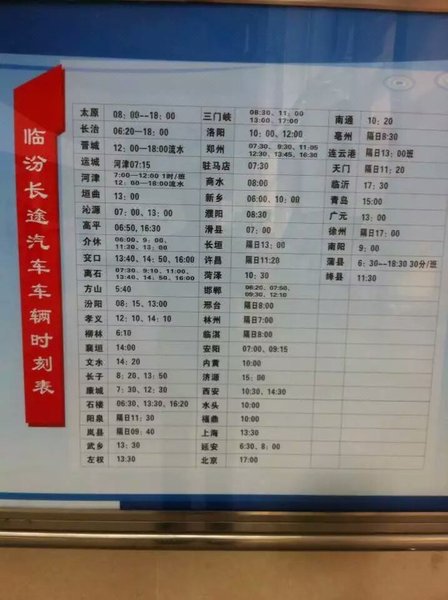 临汾长途汽车车辆时刻表
太原 08:00--18:00
长治 06:20--18:00
晋城 12:00--18:00流水
运城 河津07:15
河津 7:00--12:00 1时/班 12:00--18:00流水
垣曲 13:00
沁源 07:00、13:00
高平 06:50、16:30
介休 06:00、9:00、11:20、13:00
交口 13:40、14:50、16:00
离石 07:30、9:10、11:00、13:40、14:50、16:00
方山 5:40
汾阳 08:15、13:00
孝义 12:10、14:10
柳林 6:10
襄垣 14:00
文水 14:20
长子 8:20、13:50
康城 7:30、12:30
石楼 06:30、13:30、16:20
阳泉 隔日11:30
岚县 隔日09:40
武乡 13:30
左权 13:30
三门峡 08:30、11:00、13:00、17:00
洛阳 10:00、12:00
郑州 07:30、9:30、11:05、12:30、13:45、16:30
驻马店 07:30
商水 08:00
新乡 06:00、10:00
濮阳 08:30
滑县 07:00
长垣 隔日13:00
许昌 隔日11:20
菏泽 10:30
邯郸 06:20、07:50、09:30、12:10
邢台 隔日8:00
林州 隔日7:00
临淇 隔日8:00
安阳 07:00、09:15
内黄 10:00
济源 15:00
西安 10:30、14:30
水头 10:00
福鼎 10:00
上海 13:30
延安 6:30、8:00
北京 17:00
南通 10:20
亳州 隔日8:30
连云港 隔日13:00班
天门 隔日11:20
临沂 17:30
青岛 15:00
广元 13:00
徐州 隔日17:00
南阳 9:00
蒲县 6:30--18:30 30分/班
绛县 11:30